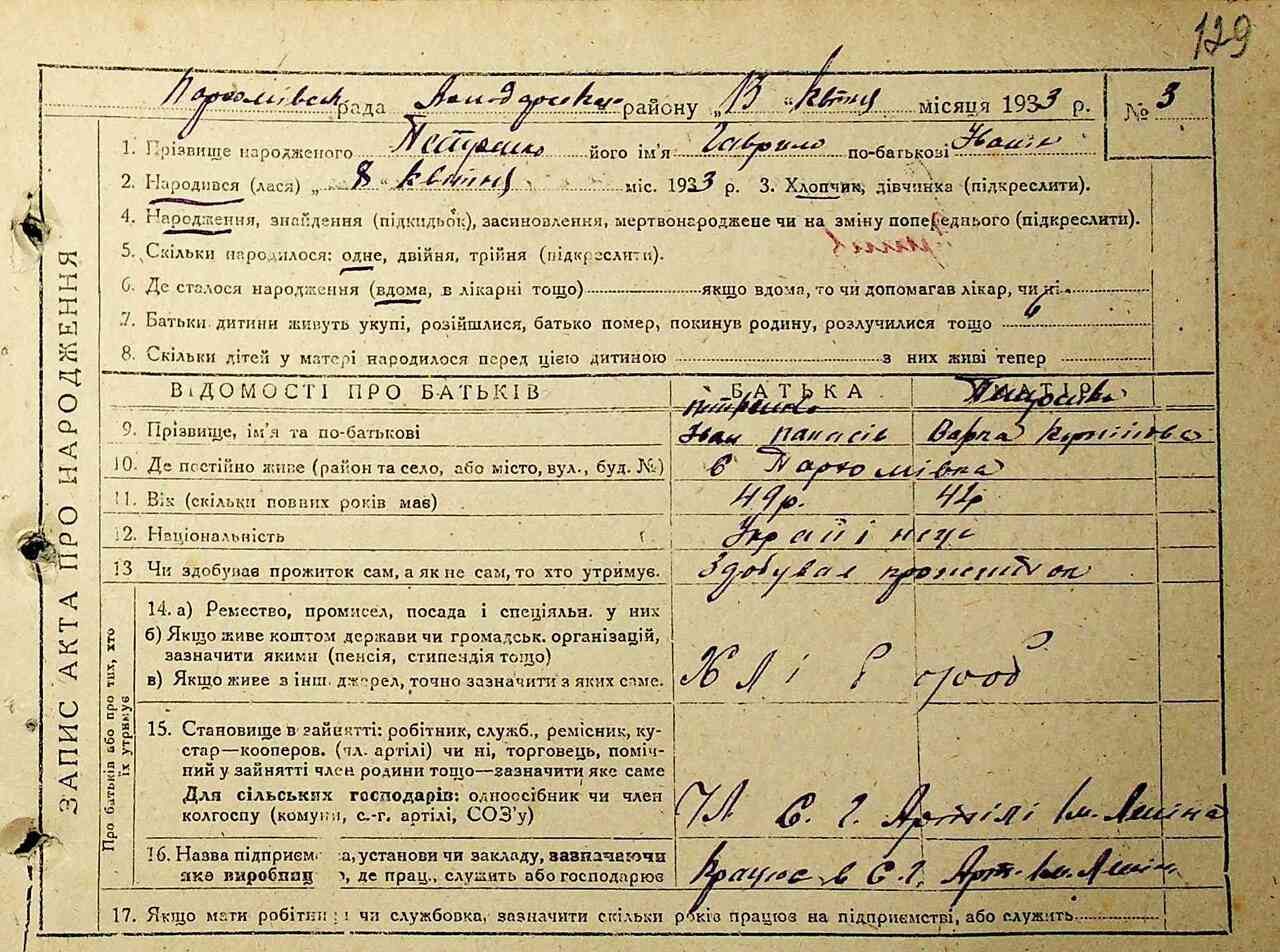 129
рада району „13 “ квітня місяця 1933 р. № 3
1. Прізвище народженого Петренко його ім'я Гаврило по-батькові Іванів
2. Народився (лася) „ 8 квітня міс. 1933 р. 3. Хлопчик, дівчинка (підкреслити).
4. Народження, знайдення (підкидьок), засиновлення, мертвонароджене чи на зміну попереднього (підкреслити).
5. Скільки народилося: одне, двійня, трійня (підкреслити).
6. Де сталося народження (вдома, в лікарні тощо) якщо вдома, то чи допомагав лікар, чи ні
7. Батьки дитини живуть укупі, розійшлися, батько помер, покинув родину, розлучилися тощо
8. Скільки дітей у матері народилося перед цією дитиною з них живі тепер 6
ЗАПИС АКТА ПРО НАРОДЖЕННЯ
ВІДОМОСТІ ПРО БАТЬКІВ БАТЬКА МАТІР
Петренко
9. Прізвище, ім'я та по-батькові Іван Панасів Варка
10. Де постійно живе (район та село, або місто, вул., буд. №) с Пархомівка
11. Вік (скільки повних років має) 49р. 42р
12. Національність Українець
13 Чи здобував прожиток сам, а як не сам, то хто утримує. Здобував прожиток
Про батьків або про тих, хто їх утримує
14. а) Ремество, промисел, посада і спеціяльн. у них
б) Якщо живе коштом держави чи громадськ. організацій,
зазначити якими (пенсія, стипендія тощо)
в) Якщо живе з інш. джерел, точно зазначити з яких саме. Хліб
15. Становище в зайнятті: робітник, служб., ремісник, ку-
стар—кооперов. (чл. артілі) чи ні, торговець, поміч-
ний у зайнятті член родини тощо—зазначити яке саме
Для сільських господарів: одноосібник чи член
колгоспу (комуни, с.-г. артілі, СОЗ'у) Чл С. г. Артілі ім. Леніна
16. Назва підприєм а, установи чи закладу, зазначаючи
яке виробниц о, де прац., служить або господарює Працює в С. г. Арт. ім. Ленін
17. Якщо мати робітни ця чи службовка, зазначити скільки років працює на підприємстві, або служить